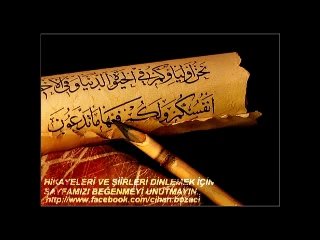 نحن أولياؤكم في الحيوة الدنيا وفي الآخر
أنفسكم ولكم فيها ما تدعون
HİKAYELERİ VE ŞİİRLERİ DİNLEMEK İÇİN
SAYFAMIZI BEĞENMEYİ UNUTMAYIN..
http://www.facebook.com/cihan.bozaci